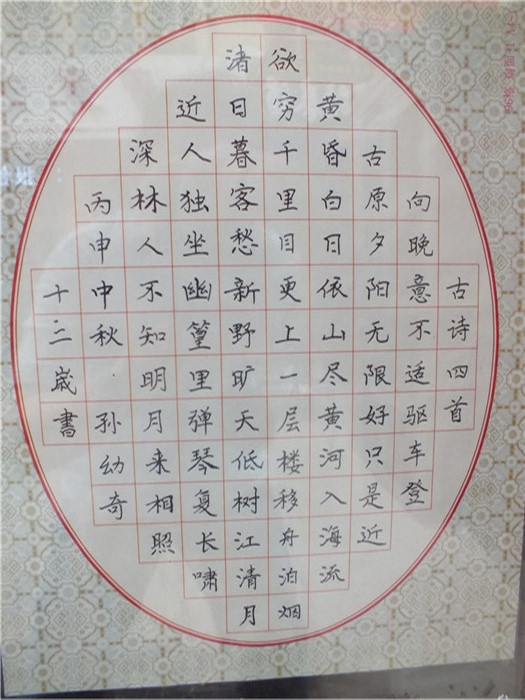 古诗四首
向晚意不适驱车登
古原夕阳无限好只是近
黄昏白日依山尽黄河入海流
欲穷千里目更上一层楼移舟泊烟
渚日暮客愁新野旷天低树江清月
近人独坐幽篁里弹琴复长啸
深林人不知明月来相照
丙申中秋 孙幼奇
十三岁書